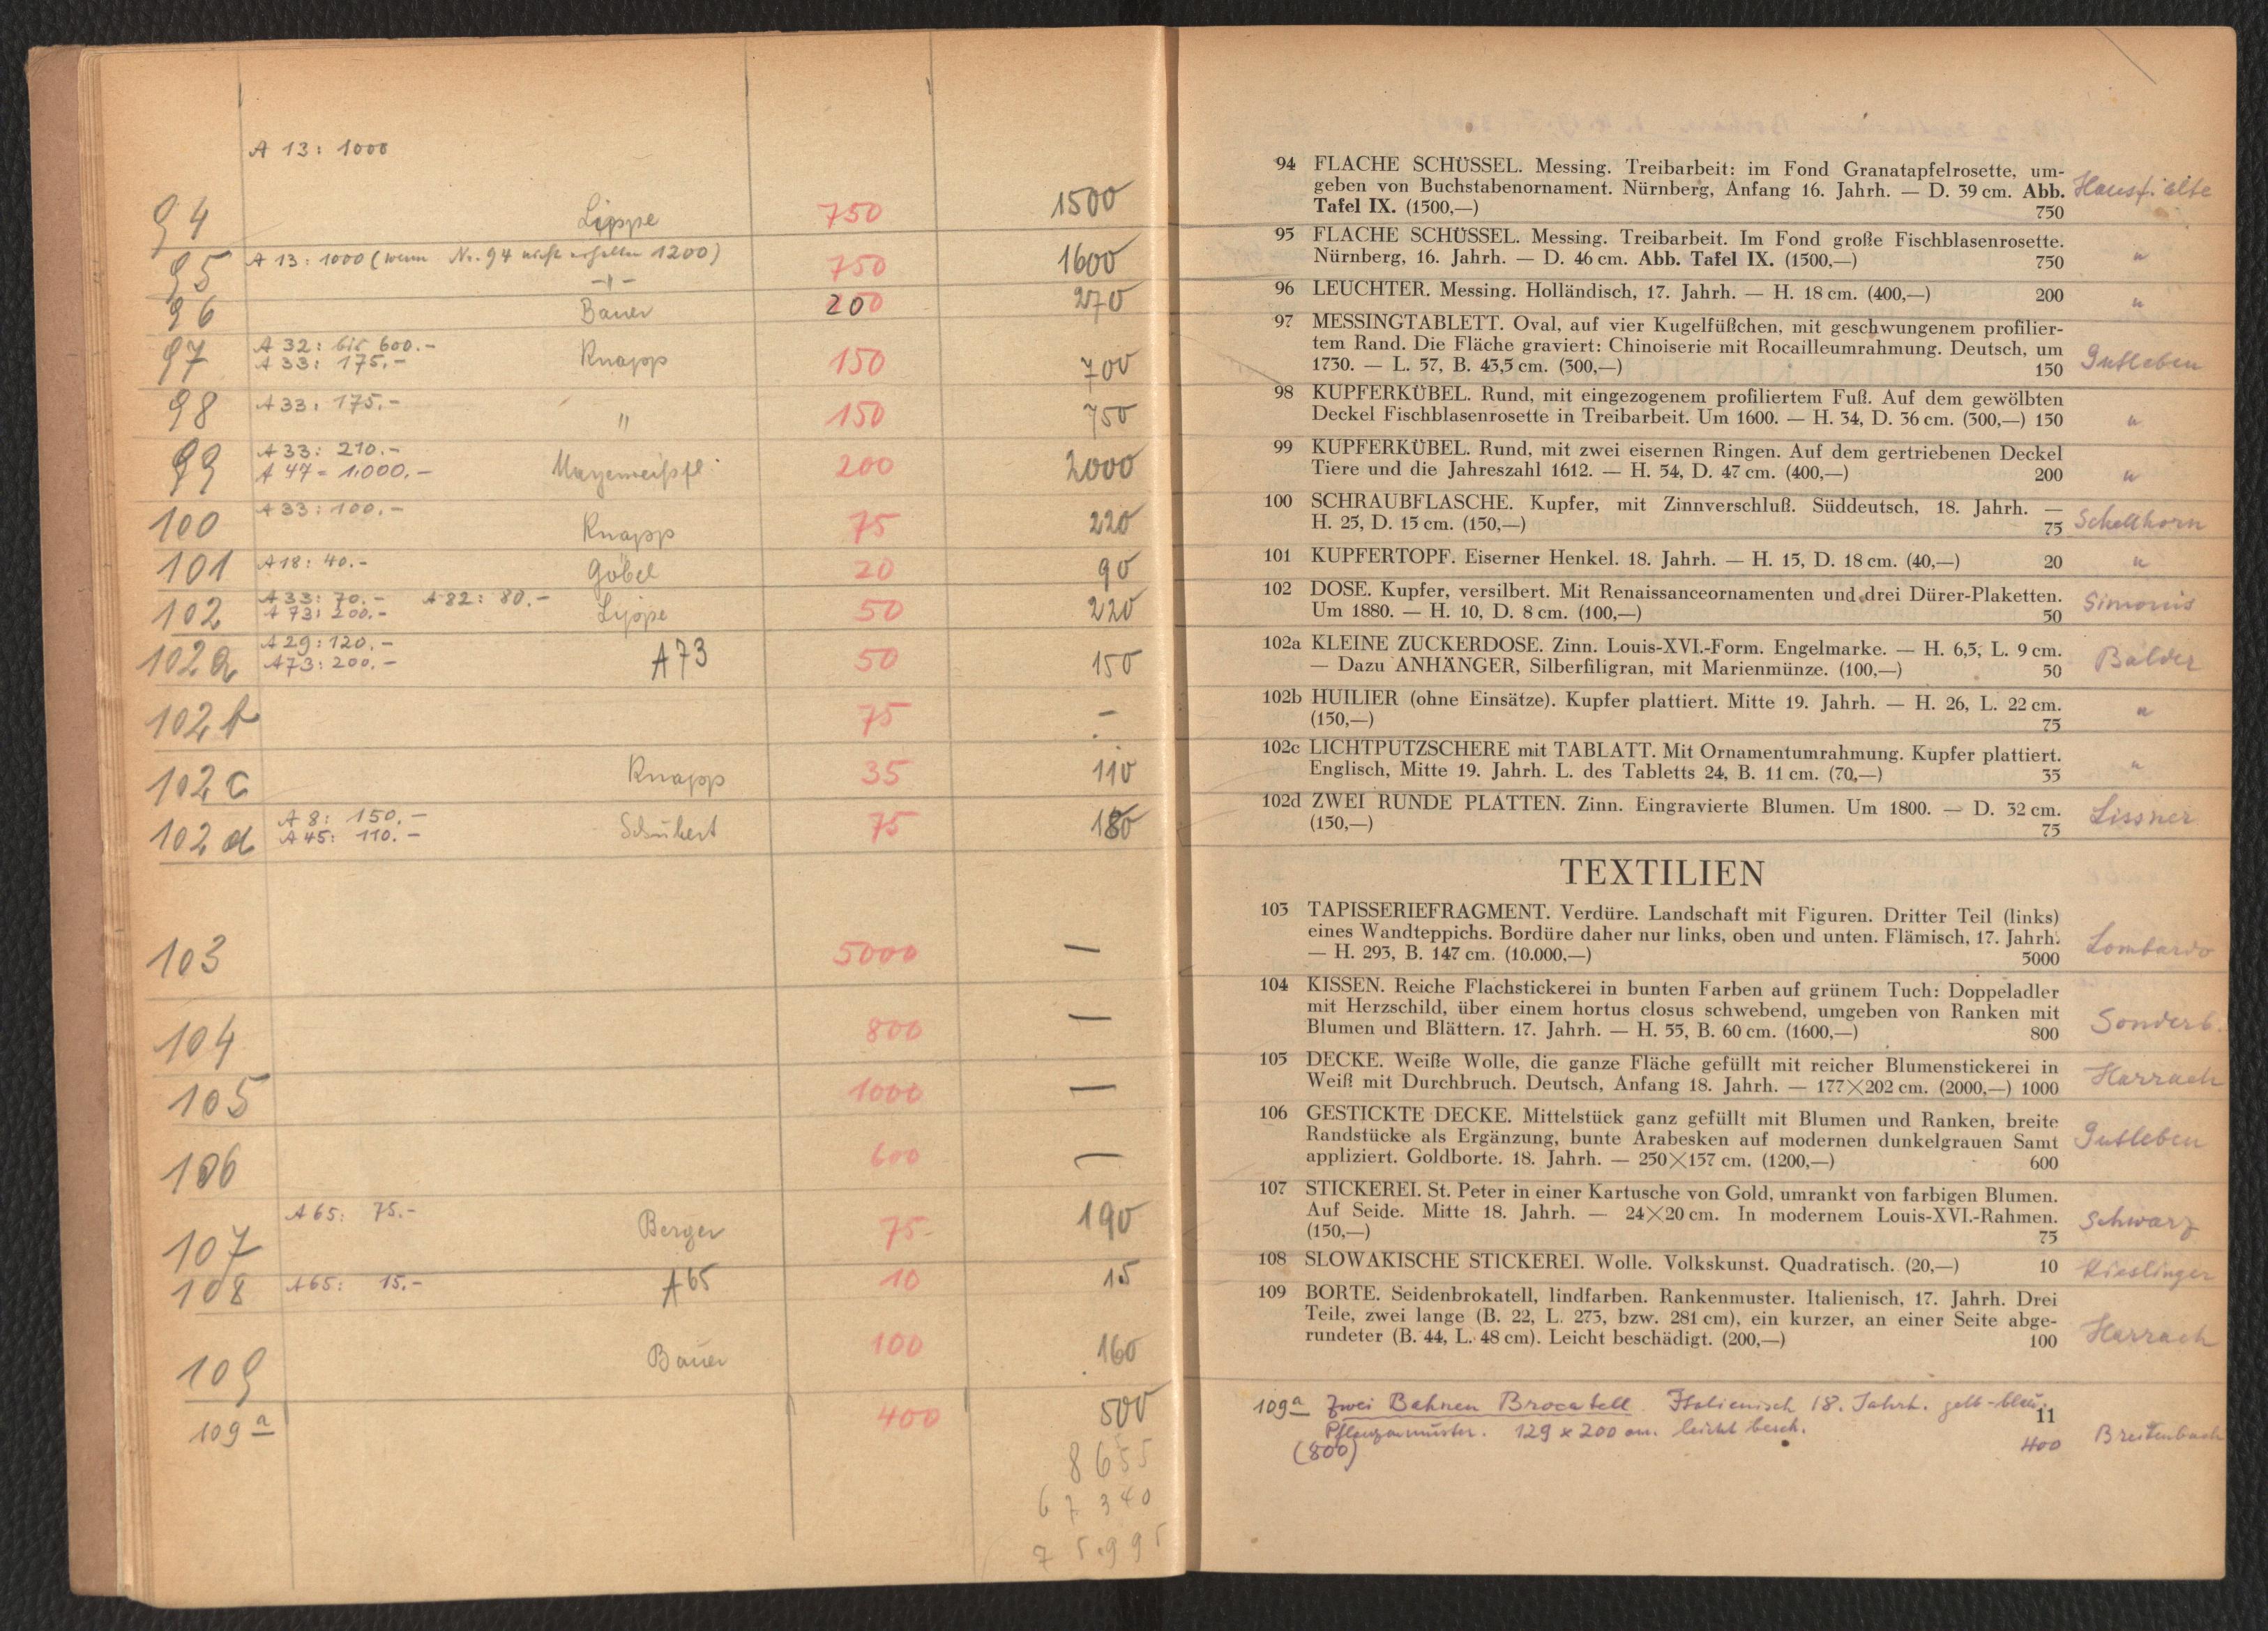 A 13: 1000
94 Lippe 750 1500
95 A 13: 1000 (wenn Nr. 94 nicht erhalten 1200) -"- 750 1600
96 Bauer 200 270
97 A 32: bis 600.- Knapp 150 700
A 33: 175.-
98 A 33: 175.- " 150 750
99 A 33: 210.- 200 2000
A 47 = 1.000.-
100 A 33: 100.- Knapp 75 220
101 A 18: 40.- Göbel 20 90
102 A 33: 70.- A 82: 80.- Lippe 50 220
A 73: 200.-
102a A 29: 120.- A73 50 150
A73: 200.-
102b 75 -
102c Knapp 35 110
102d A 8: 150.- Schubert 75 180
A 45: 110.-
103 5000 —
104 800 —
105 1000 —
106 600 —
107 A 65: 75.- Berger 75- 190
108 A 65: 15.- A65 10 15
109 Bauer 100 160
109a 400 500
8655
67340
75.995
94 FLACHE SCHÜSSEL. Messing. Treibarbeit: im Fond Granatapfelrosette, um-
geben von Buchstabenornament. Nürnberg, Anfang 16. Jahrh. — D. 39 cm. Abb.
Tafel IX. (1500,—) 750
95 FLACHE SCHÜSSEL. Messing. Treibarbeit. Im Fond große Fischblasenrosette.
Nürnberg, 16. Jahrh. — D. 46 cm. Abb. Tafel IX. (1500,—) 750 "
96 LEUCHTER. Messing. Holländisch, 17. Jahrh. — H. 18 cm. (400,—) 200 "
97 MESSINGTABLETT. Oval, auf vier Kugelfüßchen, mit geschwungenem profilier-
tem Rand. Die Fläche graviert: Chinoiserie mit Rocailleumrahmung. Deutsch, um
1730. — L. 57, B. 43,5 cm. (300,—) 150 Gutleben
98 KUPFERKÜBEL. Rund, mit eingezogenem profiliertem Fuß. Auf dem gewölbten
Deckel Fischblasenrosette in Treibarbeit. Um 1600. — H. 34, D. 36 cm. (300,—) 150 "
99 KUPFERKÜBEL. Rund, mit zwei eisernen Ringen. Auf dem gertriebenen Deckel
Tiere und die Jahreszahl 1612. — H. 54, D. 47 cm. (400,—) 200 "
100 SCHRAUBFLASCHE. Kupfer, mit Zinnverschluß. Süddeutsch, 18. Jahrh. —
H. 25, D. 15 cm. (150,—) 75 Schellhorn
101 KUPFERTOPF. Eiserner Henkel. 18. Jahrh. — H. 15, D. 18 cm. (40,—) 20 "
102 DOSE. Kupfer, versilbert. Mit Renaissanceornamenten und drei Dürer-Plaketten.
Um 1880. — H. 10, D. 8 cm. (100,—) 50 Simonis
102a KLEINE ZUCKERDOSE. Zinn. Louis-XVI.-Form. Engelmarke. — H. 6,5, L. 9 cm.
— Dazu ANHÄNGER, Silberfiligran, mit Marienmünze. (100,—) 50 Balder
102b HUILIER (ohne Einsätze). Kupfer plattiert. Mitte 19. Jahrh. — H. 26, L. 22 cm.
(150,—) 75 "
102c LICHTPUTZSCHERE mit TABLATT. Mit Ornamentumrahmung. Kupfer plattiert.
Englisch, Mitte 19. Jahrh. L. des Tabletts 24, B. 11 cm. (70,—) 35 "
102d ZWEI RUNDE PLATTEN. Zinn. Eingravierte Blumen. Um 1800. — D. 32 cm.
(150,—) 75 Lissner
TEXTILIEN
103 TAPISSERIEFRAGMENT. Verdüre. Landschaft mit Figuren. Dritter Teil (links)
eines Wandteppichs. Bordüre daher nur links, oben und unten. Flämisch, 17. Jahrh.
— H. 293, B. 147 cm. (10.000,—) 5000 Lombardo
104 KISSEN. Reiche Flachstickerei in bunten Farben auf grünem Tuch: Doppeladler
mit Herzschild, über einem hortus closus schwebend, umgeben von Ranken mit
Blumen und Blättern. 17. Jahrh. — H. 55, B. 60 cm. (1600,—) 800 Sonderb.
105 DECKE. Weiße Wolle, die ganze Fläche gefüllt mit reicher Blumenstickerei in
Weiß mit Durchbruch. Deutsch, Anfang 18. Jahrh. — 177×202 cm. (2000,—) 1000 Harrach
106 GESTICKTE DECKE. Mittelstück ganz gefüllt mit Blumen und Ranken, breite
Randstücke als Ergänzung, bunte Arabesken auf modernen dunkelgrauen Samt
appliziert. Goldborte. 18. Jahrh. — 250×157 cm. (1200,—) 600 Gutleben
107 STICKEREI. St. Peter in einer Kartusche von Gold, umrankt von farbigen Blumen.
Auf Seide. Mitte 18. Jahrh. — 24×20 cm. In modernem Louis-XVI.-Rahmen.
(150,—) 75 Schwarz
108 SLOWAKISCHE STICKEREI. Wolle. Volkskunst. Quadratisch. (20,—) 10 Kieslinger
109 BORTE. Seidenbrokatell, lindfarben. Rankenmuster. Italienisch, 17. Jahrh. Drei
Teile, zwei lange (B. 22, L. 273, bzw. 281 cm), ein kurzer, an einer Seite abge-
rundeter (B. 44, L. 48 cm). Leicht beschädigt. (200,—) 100 Harrach
109a Zwei Bahnen Brocatell. Italienisch 18. Jahrh. gelb-blau.
11
Pflanzenmuster. 129 x 200 cm. leicht besch.
(800) 400 Breitenbach